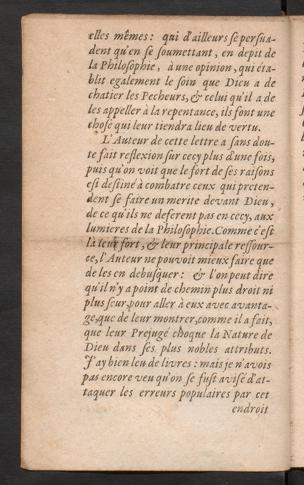 elles mêmes: qui d'ailleurs se persua-
dent qu'en se soumettant, en depit de
la Philosophie, à une opinion, qui éta-
blit egalement le soin que Dieu a de
chatier les Pecheurs, & celui qu'il a de
les appeller à la repentance, ils font une
chose qui leur tiendra lieu de vertu.
L'Auteur de cette lettre a sans dou-
te fait reflexion sur cecy plus d'une fois,
puis qu'on voit que le fort de ses raisons
est destiné à combatre ceux qui preten-
dent se faire un merite devant Dieu,
de ce qu'ils ne deferent pas en cecy, aux
lumieres de la Philosophie. Comme c'est
là leur fort, & leur principale ressour-
ce, l'Auteur ne pouvoit mieux faire que
de les en debusquer: & l'on peut dire
qu'il n'y a point de chemin plus droit ni
plus seur, pour aller à eux avec avanta-
ge, que de leur montrer, comme il a fait,
que leur Prejugé choque la Nature de
Dieu dans ses plus nobles attributs.
J'ay bien leu de livres: mais je n'avois
pas encore veu qu'on se fust avisé d'at-
taquer les erreurs populaires par cet
endroit